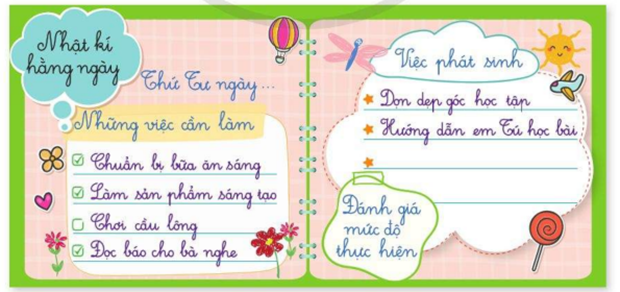 Nhật kí
hằng ngày
Thứ Tư ngày...
Những việc cần làm
Chuẩn bị bữa ăn sáng
Làm sản phẩm sáng tạo
Chơi cầu lông
Đọc báo cho bà nghe
Việc phát sinh
Dọn dẹp góc học tập
Hướng dẫn em Tú học bài
Đánh giá
mức độ
thực hiện